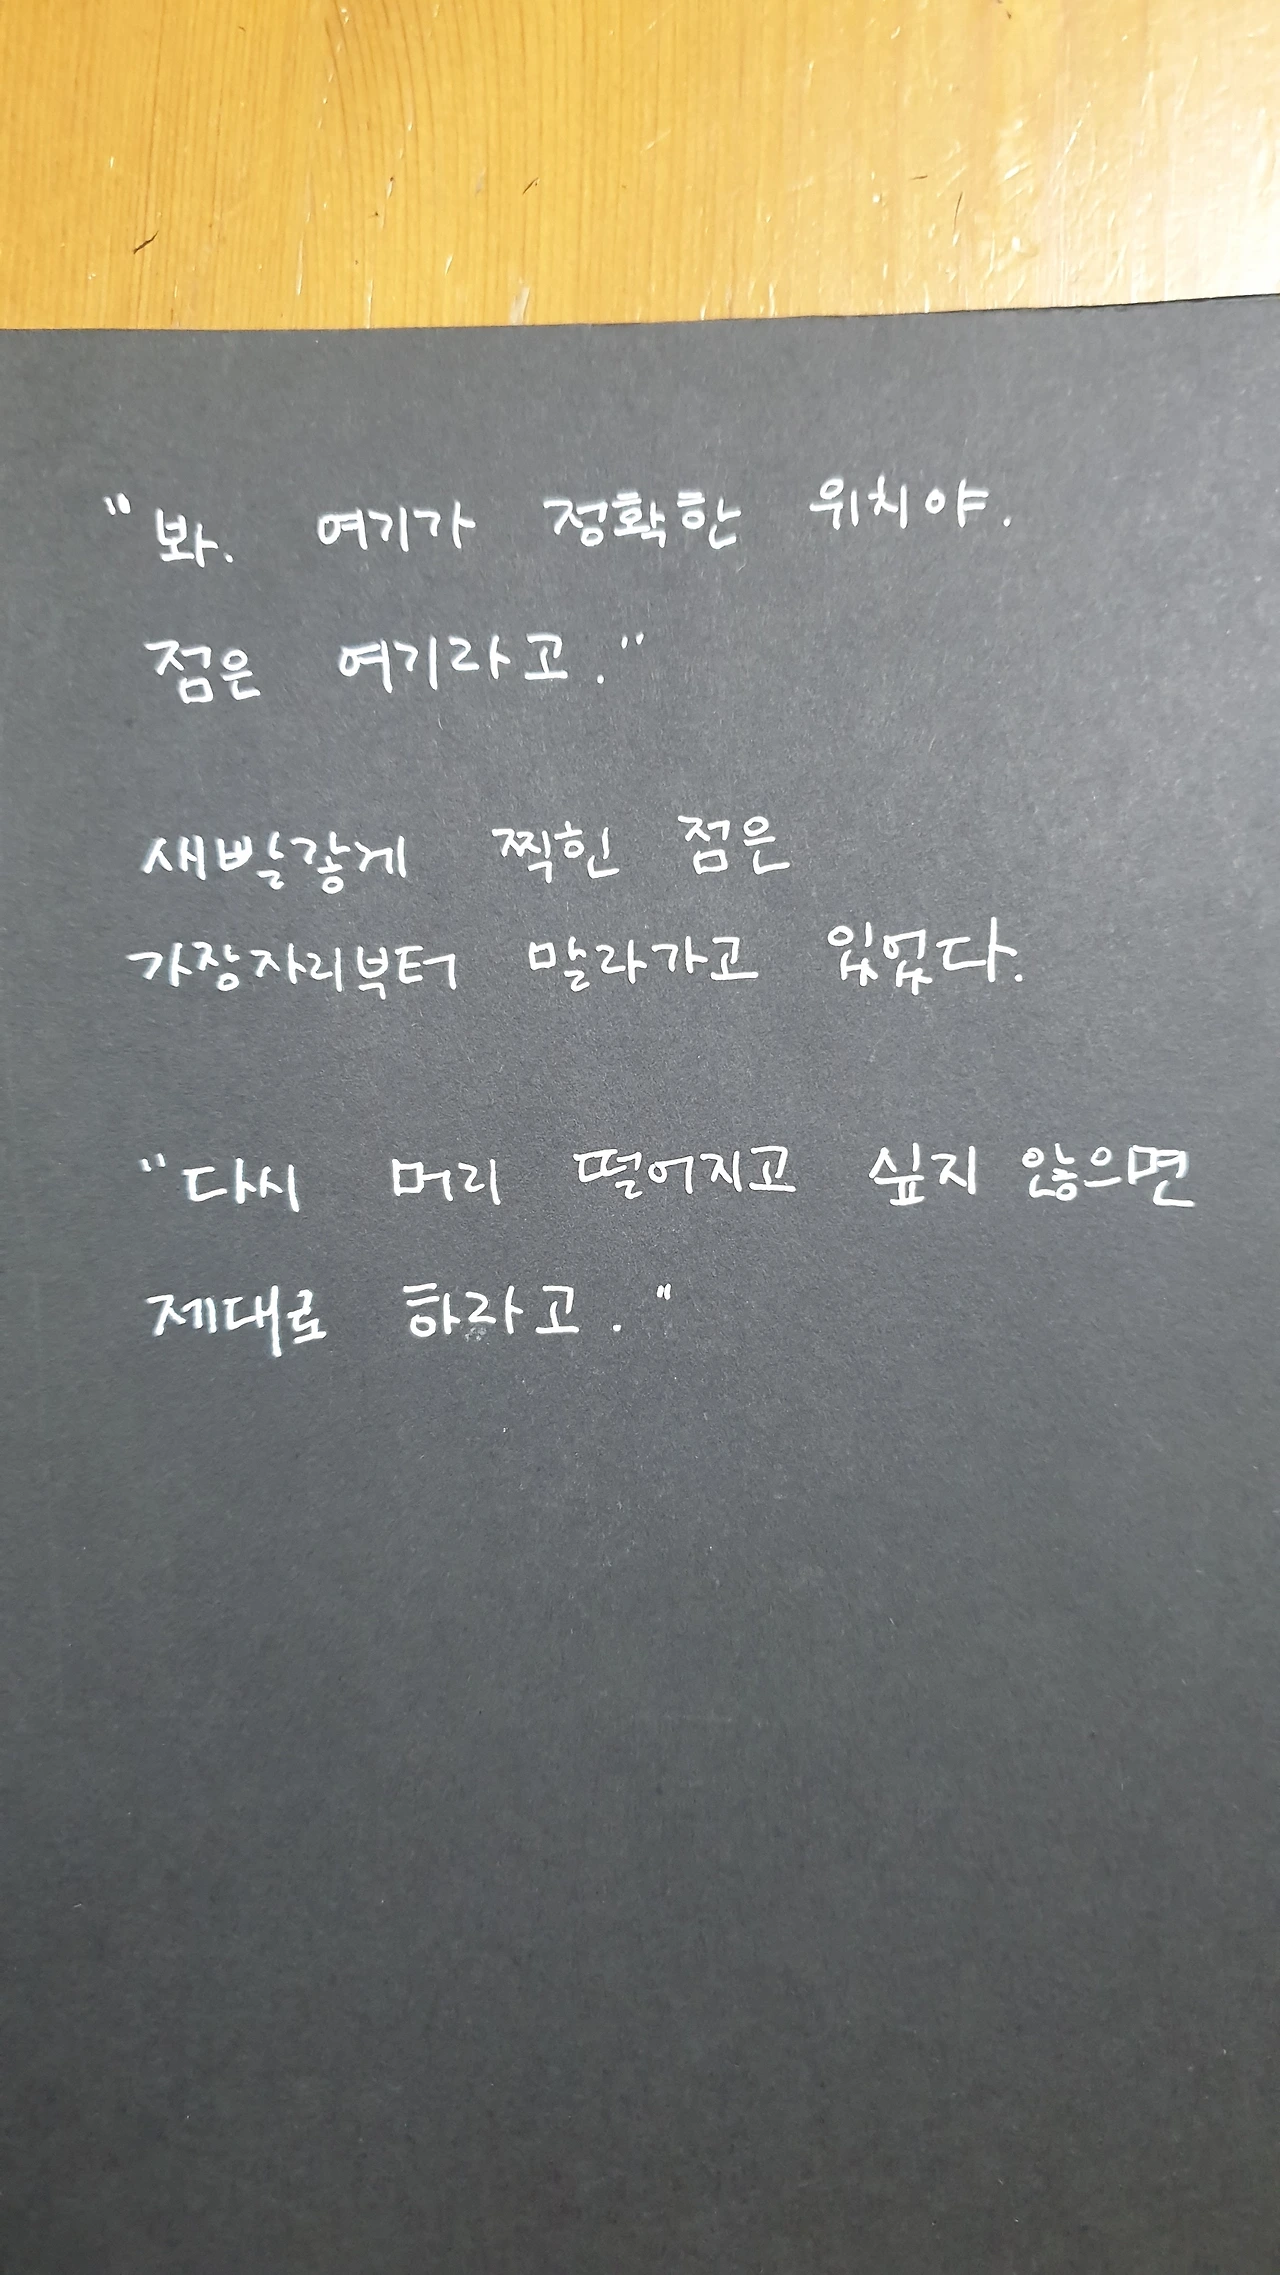 "봐. 여기가 정확한 위치야.
점은 여기라고."
새빨갛게 찍힌 점은
가장자리부터 말라가고 있었다.
"다시 머리 떨어지고 싶지 않으면
제대로 하라고."